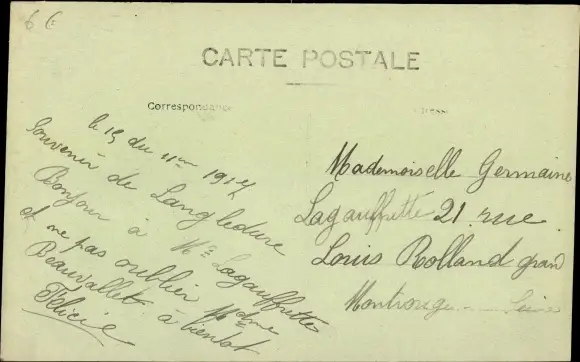 6 €
CARTE POSTALE
Correspondance
le 15 du 11me 1914
Souvenir de Langledure
Bonjour à Me Lagauffrette
et ne pas oublier Mdme
Beauvallet à bientot
Félicie
Mademoiselle Germaine
Lagauffrette 21 rue
Louis Rolland grand
Montrouge